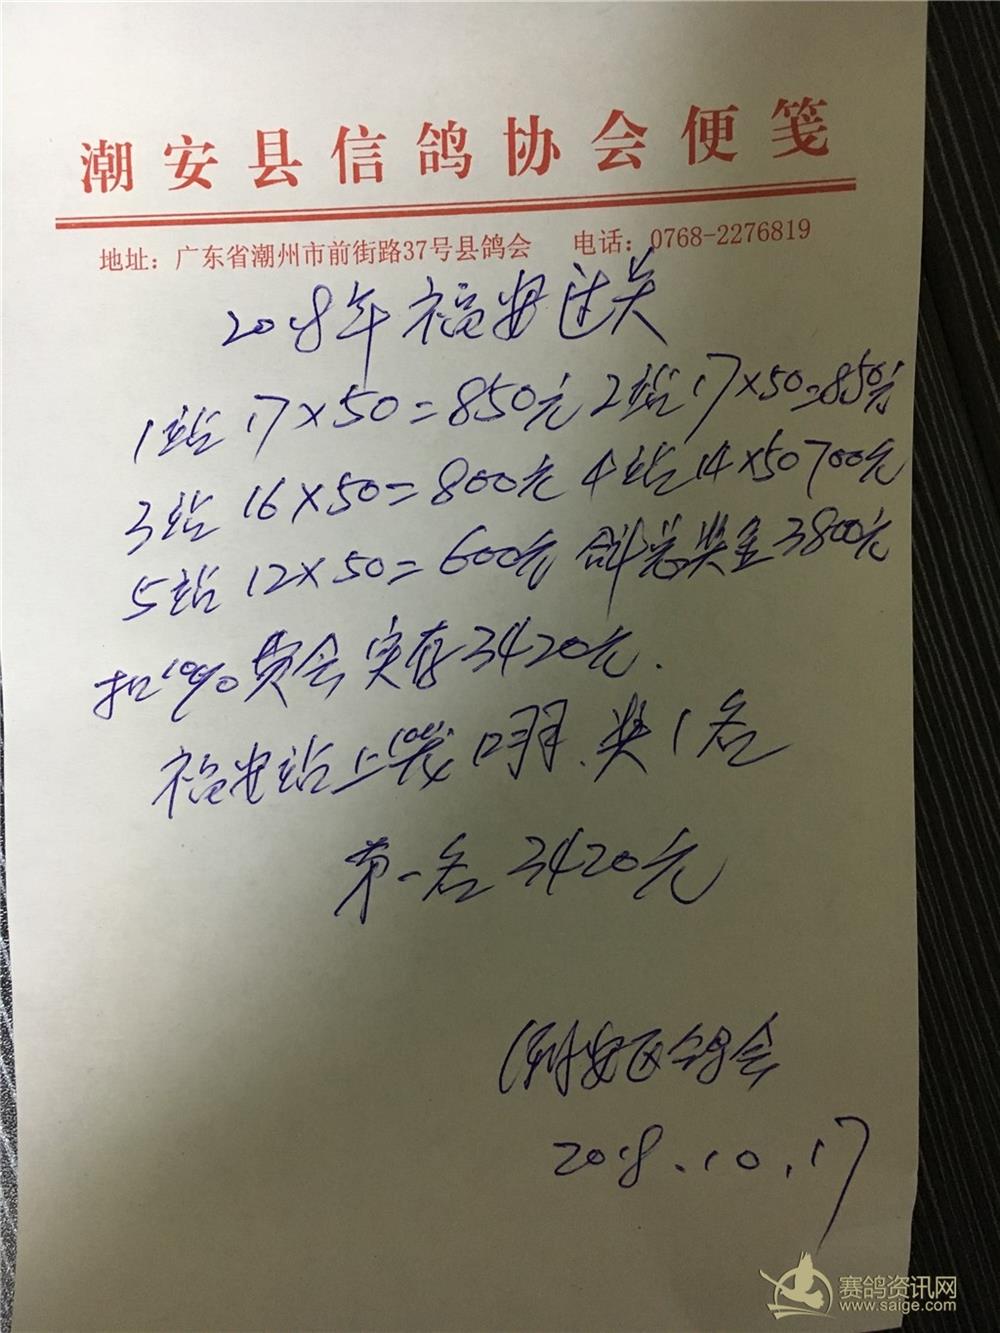 潮安县信鸽协会便笺
地址：广东省潮州市前街路37号县鸽会 电话：0768-2276819
2018年福安过关
1站 17×50=850元 2站 17×50=850元
3站 16×50=800元 4站 14×50 700元
5站 12×50=600元 合计总奖金3800元
扣10% 费会 实存3420元.
福安站上 羽.奖1名
第一名 3420元
潮安区鸽会
2018.10.17
赛鸽资讯网
www.saige.com